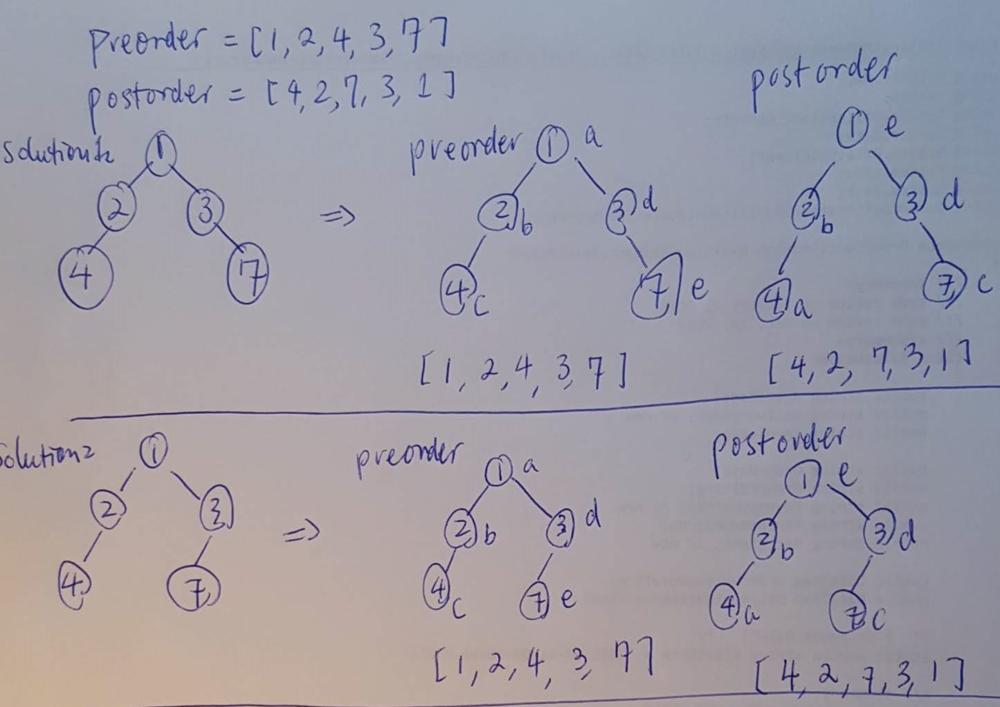 preorder = [1, 2, 4, 3, 7]
postorder = [4, 2, 7, 3, 1]
postorder
Solution1
1
2 3
4 7
⇒
preorder
1 a
2 b 3 d
4 c 7 e
[1, 2, 4, 3, 7]
1 e
2 b 3 d
4 a 7 c
[4, 2, 7, 3, 1]
Solution2
1
2 3
4 7
⇒
preorder
1 a
2 b 3 d
4 c 7 e
[1, 2, 4, 3, 7]
postorder
1 e
2 b 3 d
4 a 7 c
[4, 2, 7, 3, 1]